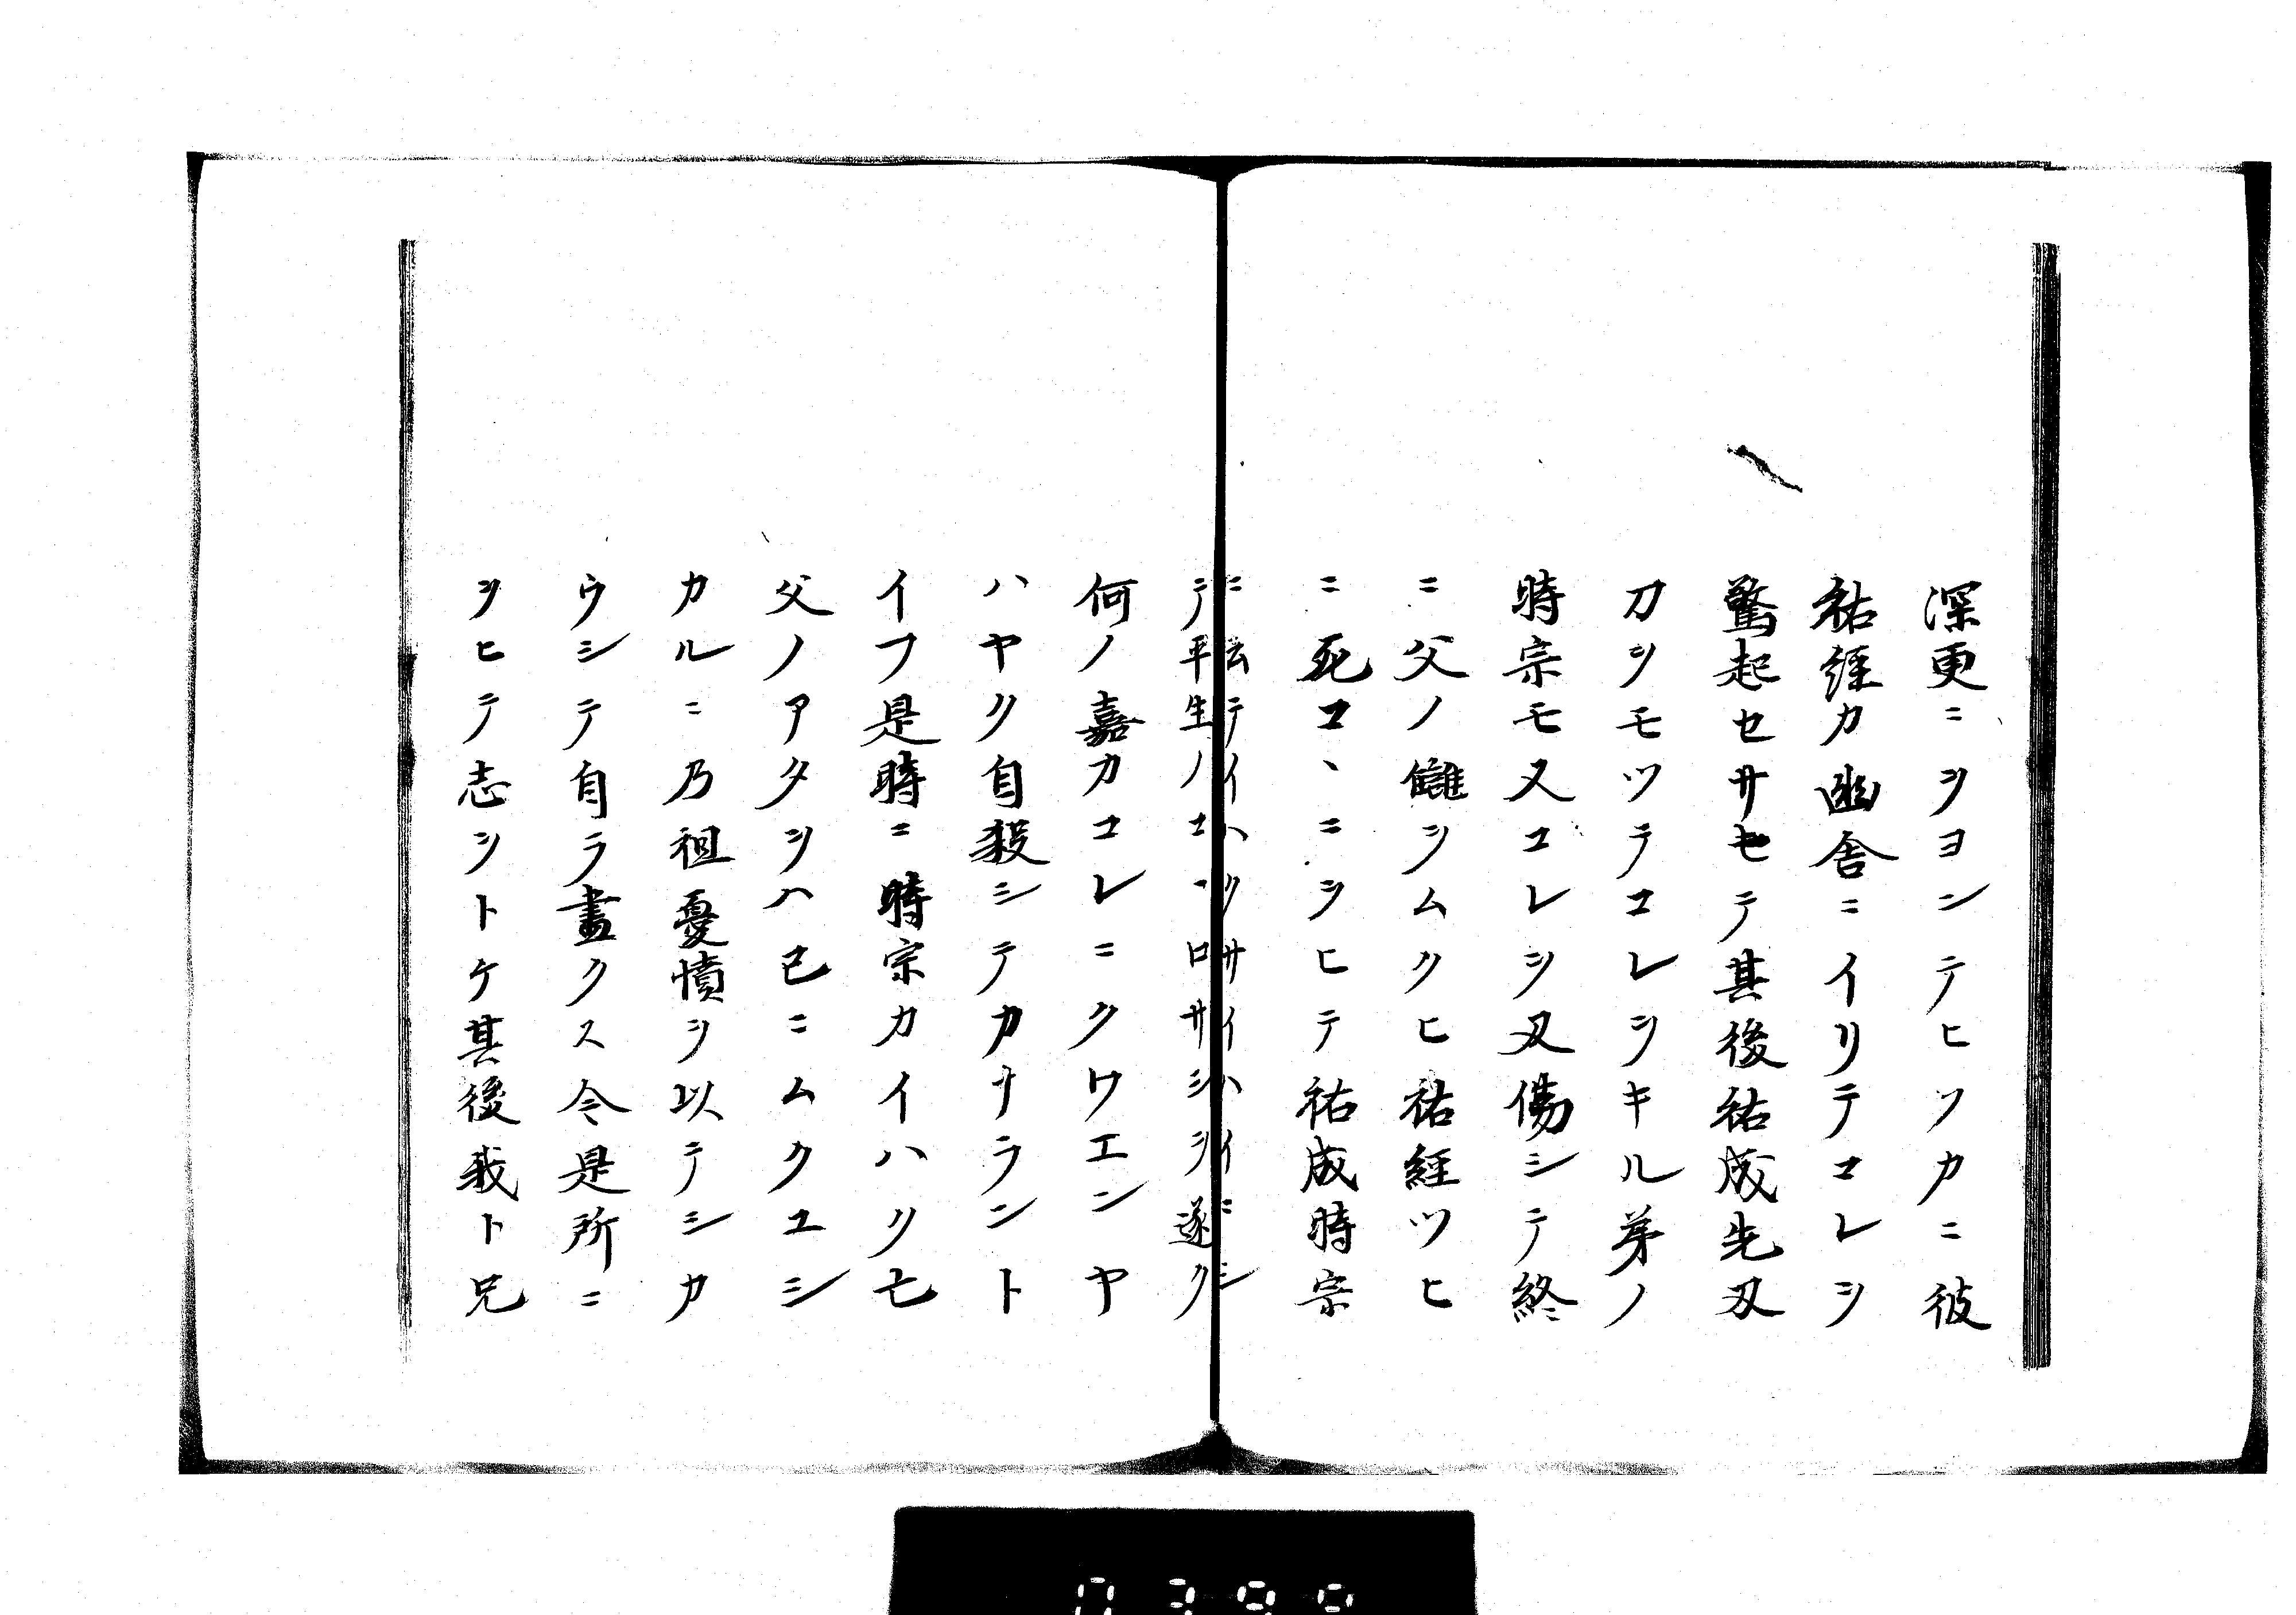 深更ニヲヨンテヒソカニ彼
祐経カ幽舎ニイリテコレヲ
驚起セサセテ其後祐成先刃
刀ヲモツテコレヲキル弟ノ
時宗モ又コレヲ刃傷シテ終
ニ父ノ讎ヲムクヒ祐経ツヒ
ニ死コヽニヲヒテ祐成時宗
ニ云テイハクサイハイニシ
テ平生ノコヽロサシヲ遂ク
何ノ嘉カコレニクワエンヤ
ハヤク自殺シテカナラント
イフ是時ニ時宗カイハクモ
父ノアタヲハ已ニムクユシ
カルニ乃祖憂憤ヲ以テシカ
ウシテ自ラ盡クス今是所ニ
ヲヒテ志ヲトケ其後我ト兄